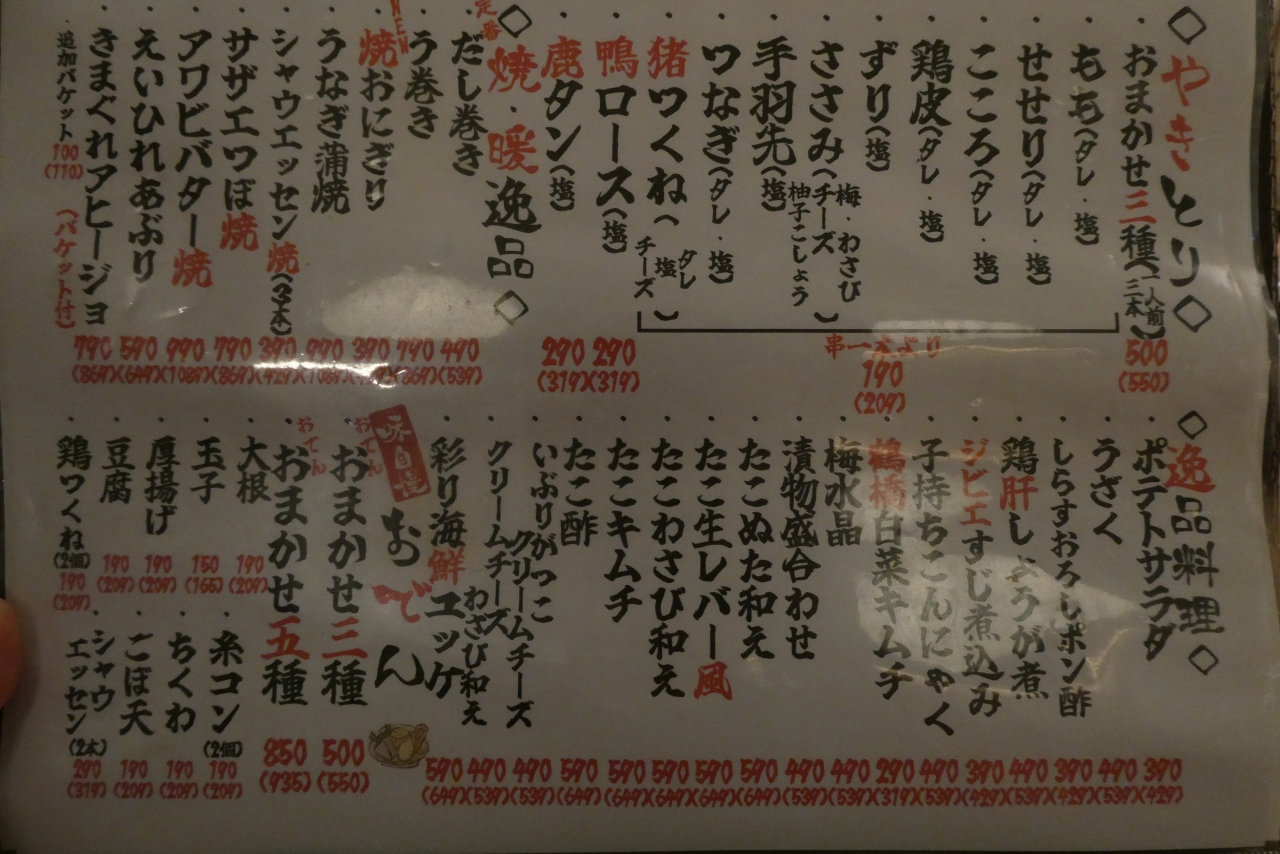 ◇やきとり◇
・おまかせ三種(一人前三本) 500 (550)
・もも(タレ・塩)
・せせり(タレ・塩)
・こころ(タレ・塩)
・鶏皮(タレ・塩)
・ずり(塩)
・ささみ(チーズ 梅・わさび 柚子こしょう)
・手羽先(塩)
・つなぎ(タレ・塩)
・猪つくね(タレ 塩 チーズ)
串一本より 190 (209)
・鴨ロース(塩) 290 (319)
・鹿タン(塩) 290 (319)
定番
◇焼・暖逸品◇
・だし巻き 490 (539)
・う巻き 790 (869)
NEW
焼おにぎり 390
・うなぎ蒲焼 990 (1089)
・シャウエッセン焼(3本) 390 (429)
・サザエつぼ焼 790 (869)
・アワビバター焼 990 (1089)
・えいひれあぶり 590 (649)
・きまぐれアヒージョ 790 (869)
追加バケット 100 (110) (バケット付)
◇逸品料理◇
・ポテトサラダ 390 (429)
・うざく 490 (539)
・しらすおろしポン酢 390 (429)
・鶏肝しょうが煮 490 (539)
・ジビエすじ煮込み 390 (429)
・子持ちこんにゃく 490 (539)
・鶴橋白菜キムチ 290 (319)
・梅水晶 490 (539)
・漬物盛合わせ 490 (539)
・たこぬた和え 590 (649)
・たこ生レバー風 590 (649)
・たこわさび和え 590 (649)
・たこキムチ 590 (649)
・たこ酢 590 (649)
・いぶりがっこクリームチーズ 490 (539)
・クリームチーズわさび和え 490 (539)
・彩り海鮮ユッケ 590 (649)
味自慢
おでん
・おでんおまかせ三種 500 (550)
・おでんおまかせ五種 850 (935)
・大根 190 (209)
・玉子 150 (165)
・厚揚げ 190 (209)
・豆腐 190 (209)
・鶏つくね(2個) 190 (209)
・糸コン(2個) 190 (209)
・ちくわ 190 (209)
・ごぼ天 190 (209)
・シャウエッセン(2本) 290 (319)